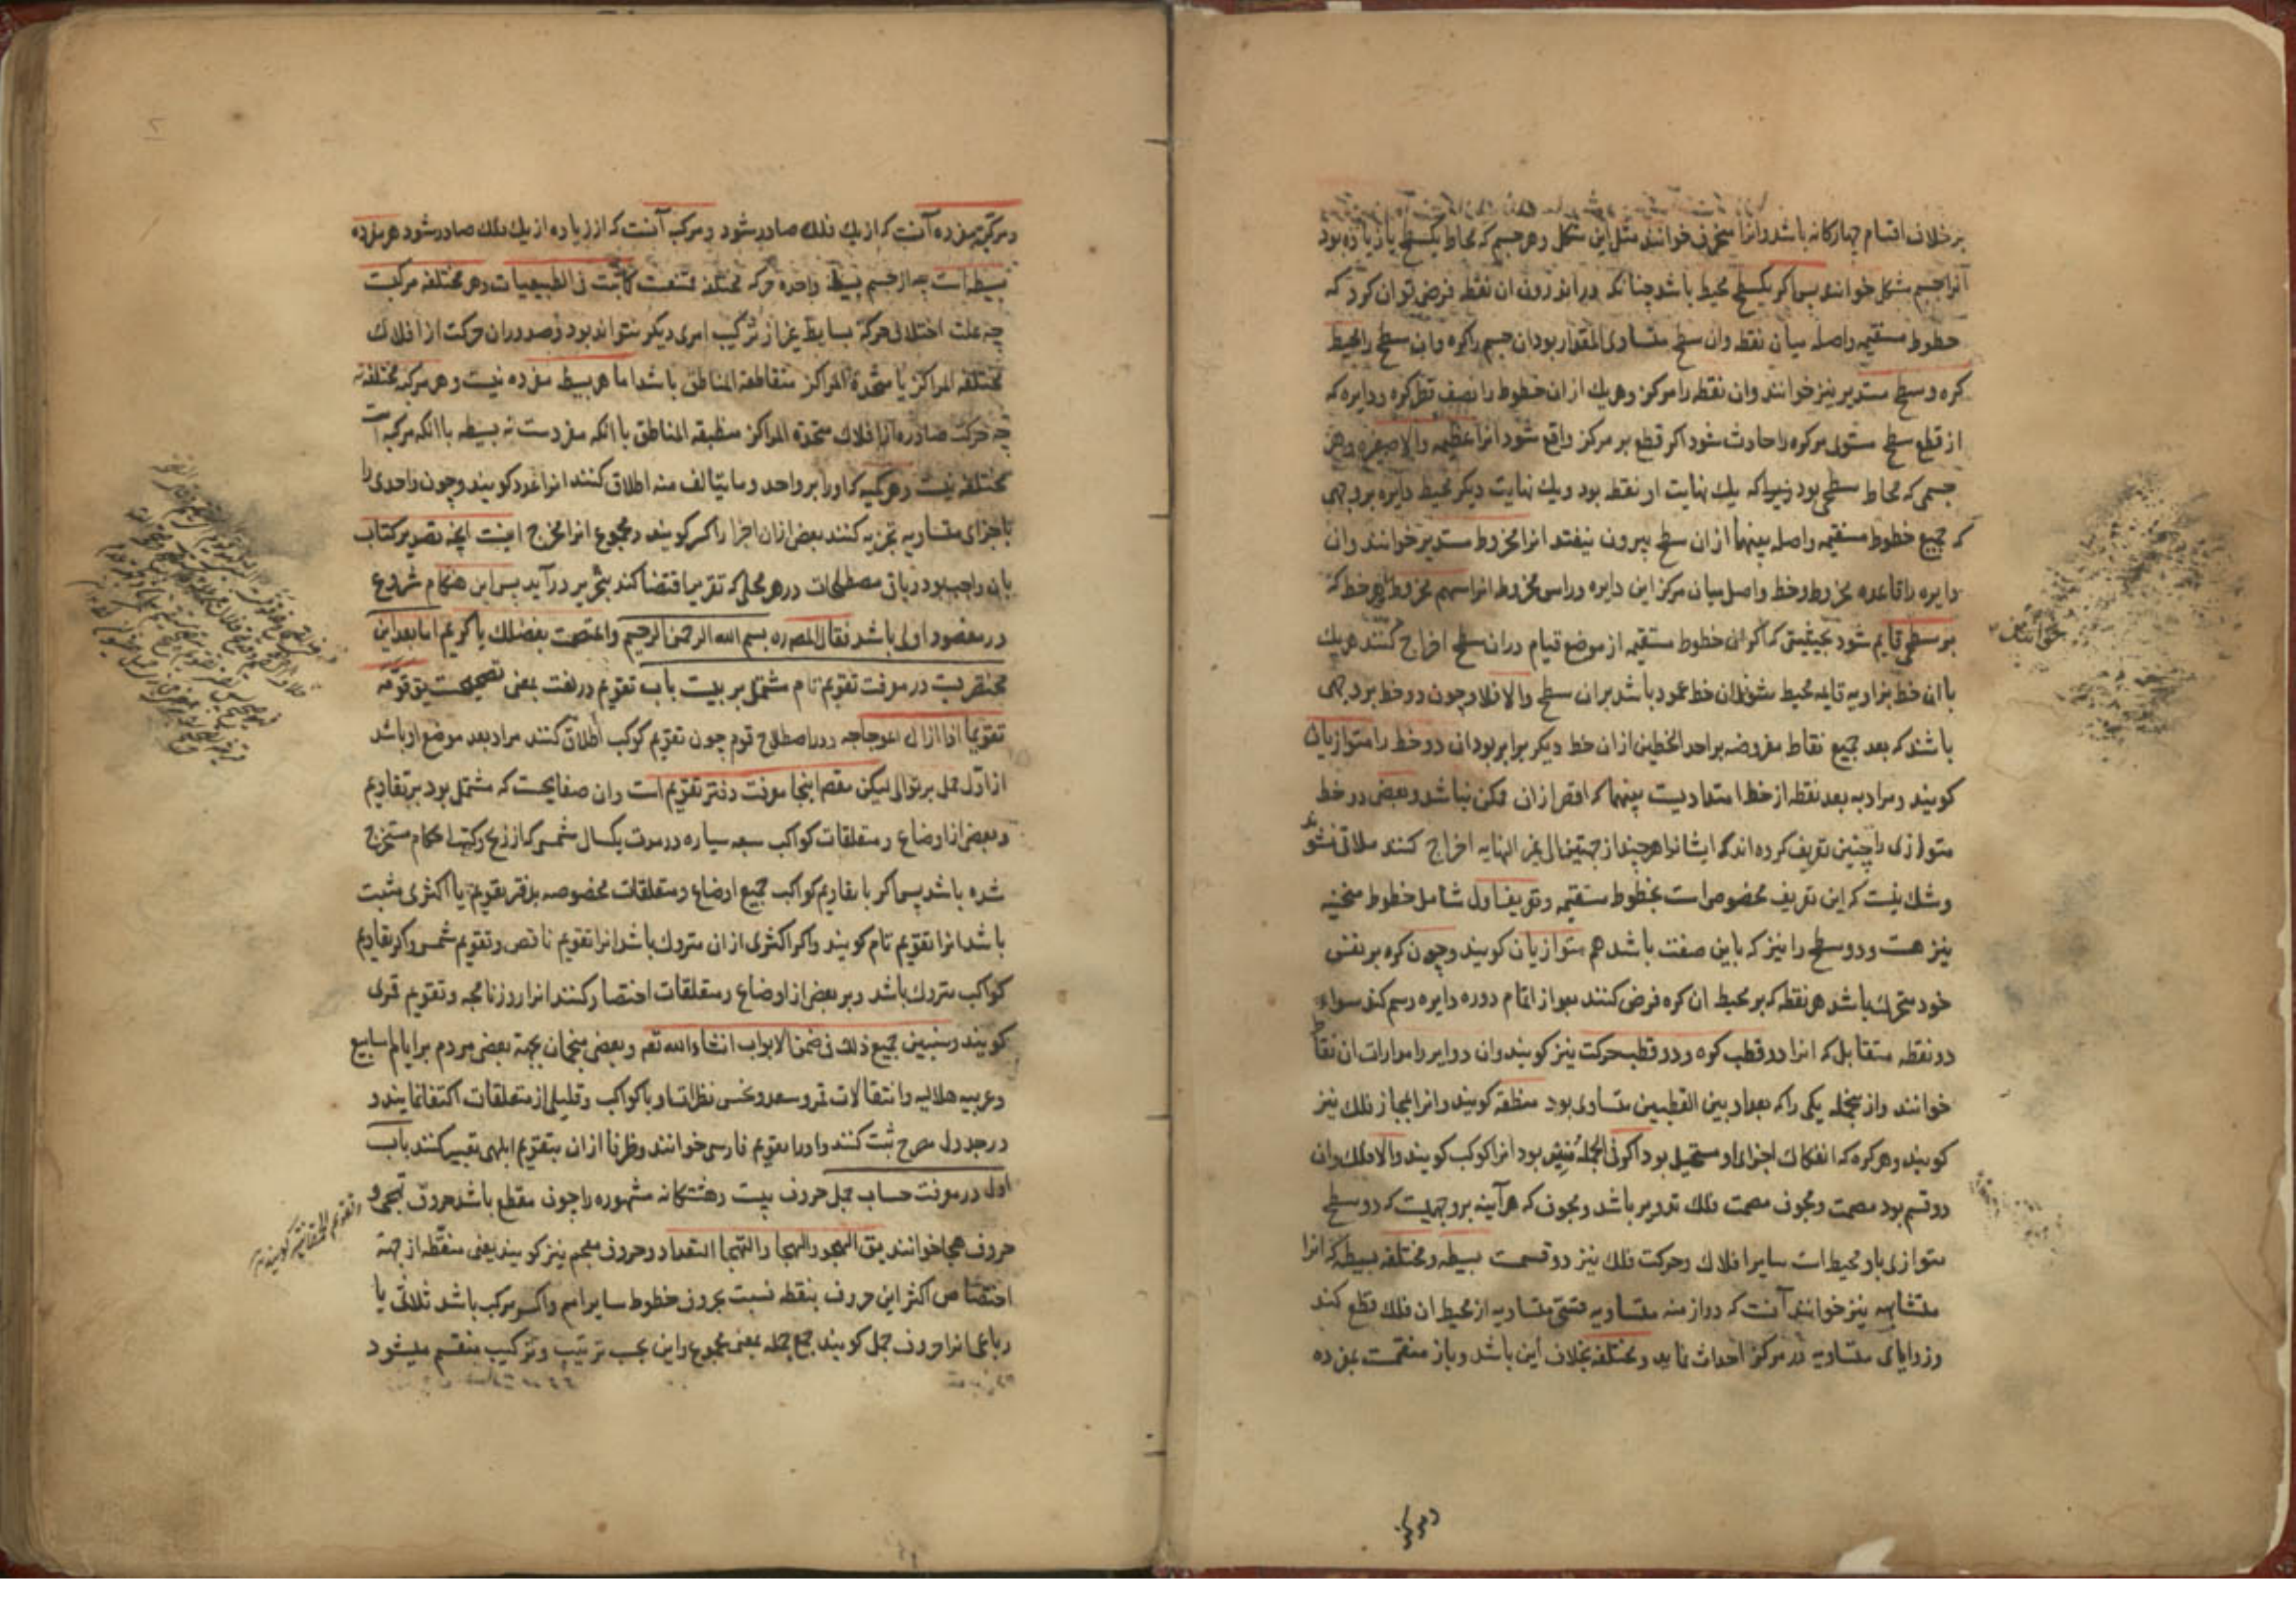 بر خلاف اقسام چهارکانه باشد وانرا منحرف خوانند مثل این شکل وهر جسم که محاط بکسطح یا زیاده بود
آنرا جسم شکل خوانند پس اکر یکسطح محیط باشد چنانکه در اندرون ان نقطه فرض توان کرد که
خطوط مستقیمه واصله میان نقطه وان سطح متساوی المقدار بود ان جسم را کره وان سطح را محیط
کره وسطح مستدیر نیز خوانند وان نقطه را مرکز وهریك از ان خطوط را نصف قطر کره ودایره که
از قطع سطح مستوی مر کره را حادث شود اکر قطع بر مرکز واقع شود انرا عظیمه والا صغیره وهر
جسمی که محاط سطحی بود که یك نهایت او نقطه بود ویك نهایت دیکر محیط دایره بر وجهی
که جمیع خطوط مستقیمه واصله بینهما از ان سطح بیرون نیفتد انرا مخروط مستدیر خوانند وان
دایره را قاعده مخروط وخط واصل میان مرکز این دایره وراس مخروط انرا سهم مخروط وهر خط که
بر سطحی قایم شود بحیثیتی که اکر ان خطوط مستقیمه از موضع قیام در ان سطح اخراج کنند هریك
با ان خط بزاویه قایمه محیط شود ان خط عمود باشد بر ان سطح والا فلا وچون دو خط بر وجهی
باشند که بعد جمیع نقاط مفروضه بر احد الخطین از ان خط دیکر برابر بود ان دو خط را متوازیان
کویند ومراد به بعد نقطه از خط امتدادیست بینهما که اقصر از ان ممکن نباشد وبعضی دو خط
متوازی را چنین تعریف کرده اند که ایشانرا هر چند از جهتین الی غیر النهایه اخراج کنند ملاقی نشوند
وشك نیست که این تعریف مخصوص است بخطوط مستقیمه وتعریف اول شامل خطوط منحنیه
نیز هست ودو سطح را نیز که باین صفت باشد هم متوازیان کویند وچون کره بر نفس
خود متحرك باشد هر نقطه که بر محیط ان کره فرض کنند بعد از اتمام دوره دایره رسم کند سواء
دو نقطه متقابل که انرا دو قطب کره ودو قطب حرکت نیز کویند وان دوایر را مدارات ان نقاط
خوانند واز جمله یکی را که بعد او بین القطبین متساوی بود منطقه کویند وانرا مجاز فلك نیز
کویند وهر کره که انفکاك اجزای او مستحیل بود اکر فی الجمله منیر بود انرا کوکب کویند والا فلك وان
دو قسم بود مصمت ومجوف مصمت فلك تدویر باشد ومجوف که هر آینه بر وجهیست که دو سطح
متوازی باو محیط است سایر افلاك وحرکت فلك نیز دو قسمست بسیطه ومختلفه بسیطه که انرا
متشابهه نیز خوانند آنست که در ازمنه متساویه قسی متساویه از محیط ان فلك قطع کند
وزوایای متساویه در مرکز احداث نماید ومختلفه بخلاف این باشد وباز منقسمست بمفرده
خوانند
ومرکبه
ومرکبه مفرده آنست که از یك فلك صادر شود ومرکب آنست که از زیاده از یك فلك صادر شود هر مفرده
بسیطه است چه از جسم بسیط واحد حرکه مختلفه ممتنعست کما ثبت فی الطبیعیات وهر مختلفه مرکبست
چه علت اختلاف حرکة بسایط غیر از ترکیب امری دیکر نتواند بود وصدور ان حرکت از افلاك
مختلفه المراکز یا متحدة المراکز متقاطعة المناطق باشد اما هر بسیطه مفرده نیست وهر مرکبه مختلفه نه
چه حرکت صادره از افلاك متحده المراکز منطبقه المناطق با انکه مفردست نه بسیطه با انکه مرکبه است
مختلفه نیست وهر کمیه که او را بر واحد وما یتالف منه اطلاق کنند انرا عدد کویند وچون واحدی را
باجزای متساویه تجزیه کنند بعض از ان اجزا را کسر کویند ومجموع انرا مخرج اینست انچه تصدیر کتاب
بان واجب بود وباقی مصطلحات در هر محلی که تقریر اقتضا کند بتحریر در آید پس این هنکام شروع
در مقصود اولی باشد نقال المصره بسم الله الرحمن الرحیم واعتصمت بفضلك یا کریم اما بعد این
مختصریست در معرفت تقویم تام مشتمل بر بیست باب تقویم در لغت بمعنی تصحیحست یق قومه
تقویما اذا ازال اعوجاجه ودر اصطلاح قوم چون تقویم کوکب اطلاق کنند مراد بعد موضع او باشد
از اول حمل بر توالی لیکن مقصد اینجا معرفت دفتر تقویم است وان صفایحست که مشتمل بود بر تقاویم
وبعضی از اوضاع ومتعلقات کواکب سبعه سیاره در مدت یکسال شمسی که از زیج وکتب احکام مستخرج
شده باشد پس اکر با تقاویم کواکب جمیع اوضاع ومتعلقات مخصوصه بدفتر تقویم یا اکثری مثبت
باشد انرا تقویم تام کویند واکر اکثری از ان متروك باشد انرا تقویم ناقص وتقویم شمسی واکر تقاویم
کواکب متروك باشد وبر بعضی از اوضاع ومتعلقات اختصار کنند انرا روزنامجه وتقویم قمری
کویند وسنبین جمیع ذلك فی ضمن الابواب انشاء الله تعه وبعضی منجمان بجهة بعضی مردم بر ایام اسابیع
وعربیه هلالیه وانتقالات قمر وسعد ونحس نظرات او با کواکب وقلیلی از متعلقات اکتفا نمایند و
در جدول مدرج ثبت کنند واو را تقویم فارسی خوانند وظرفا از ان بتقویم ابلهی تعبیر کنند باب
اول در معرفت حساب جمل حروف بیست وهشتکانه مشهوره را چون مقطع باشد حروف تهجی و
حروف هجا خوانند یق الهجو والهجا والتهجا التعداد وحروف معجم نیز کویند یعنی منقطه از جهة
اختصاص اکثر این حروف بنقطه نسبت بحروف خطوط سایر امم واکر مرکب باشد ثلاثی یا
رباعی انرا حروف جمل کویند جمع جمله بمعنی مجموع واین بحسب ترتیب وترکیب منقسم میشود